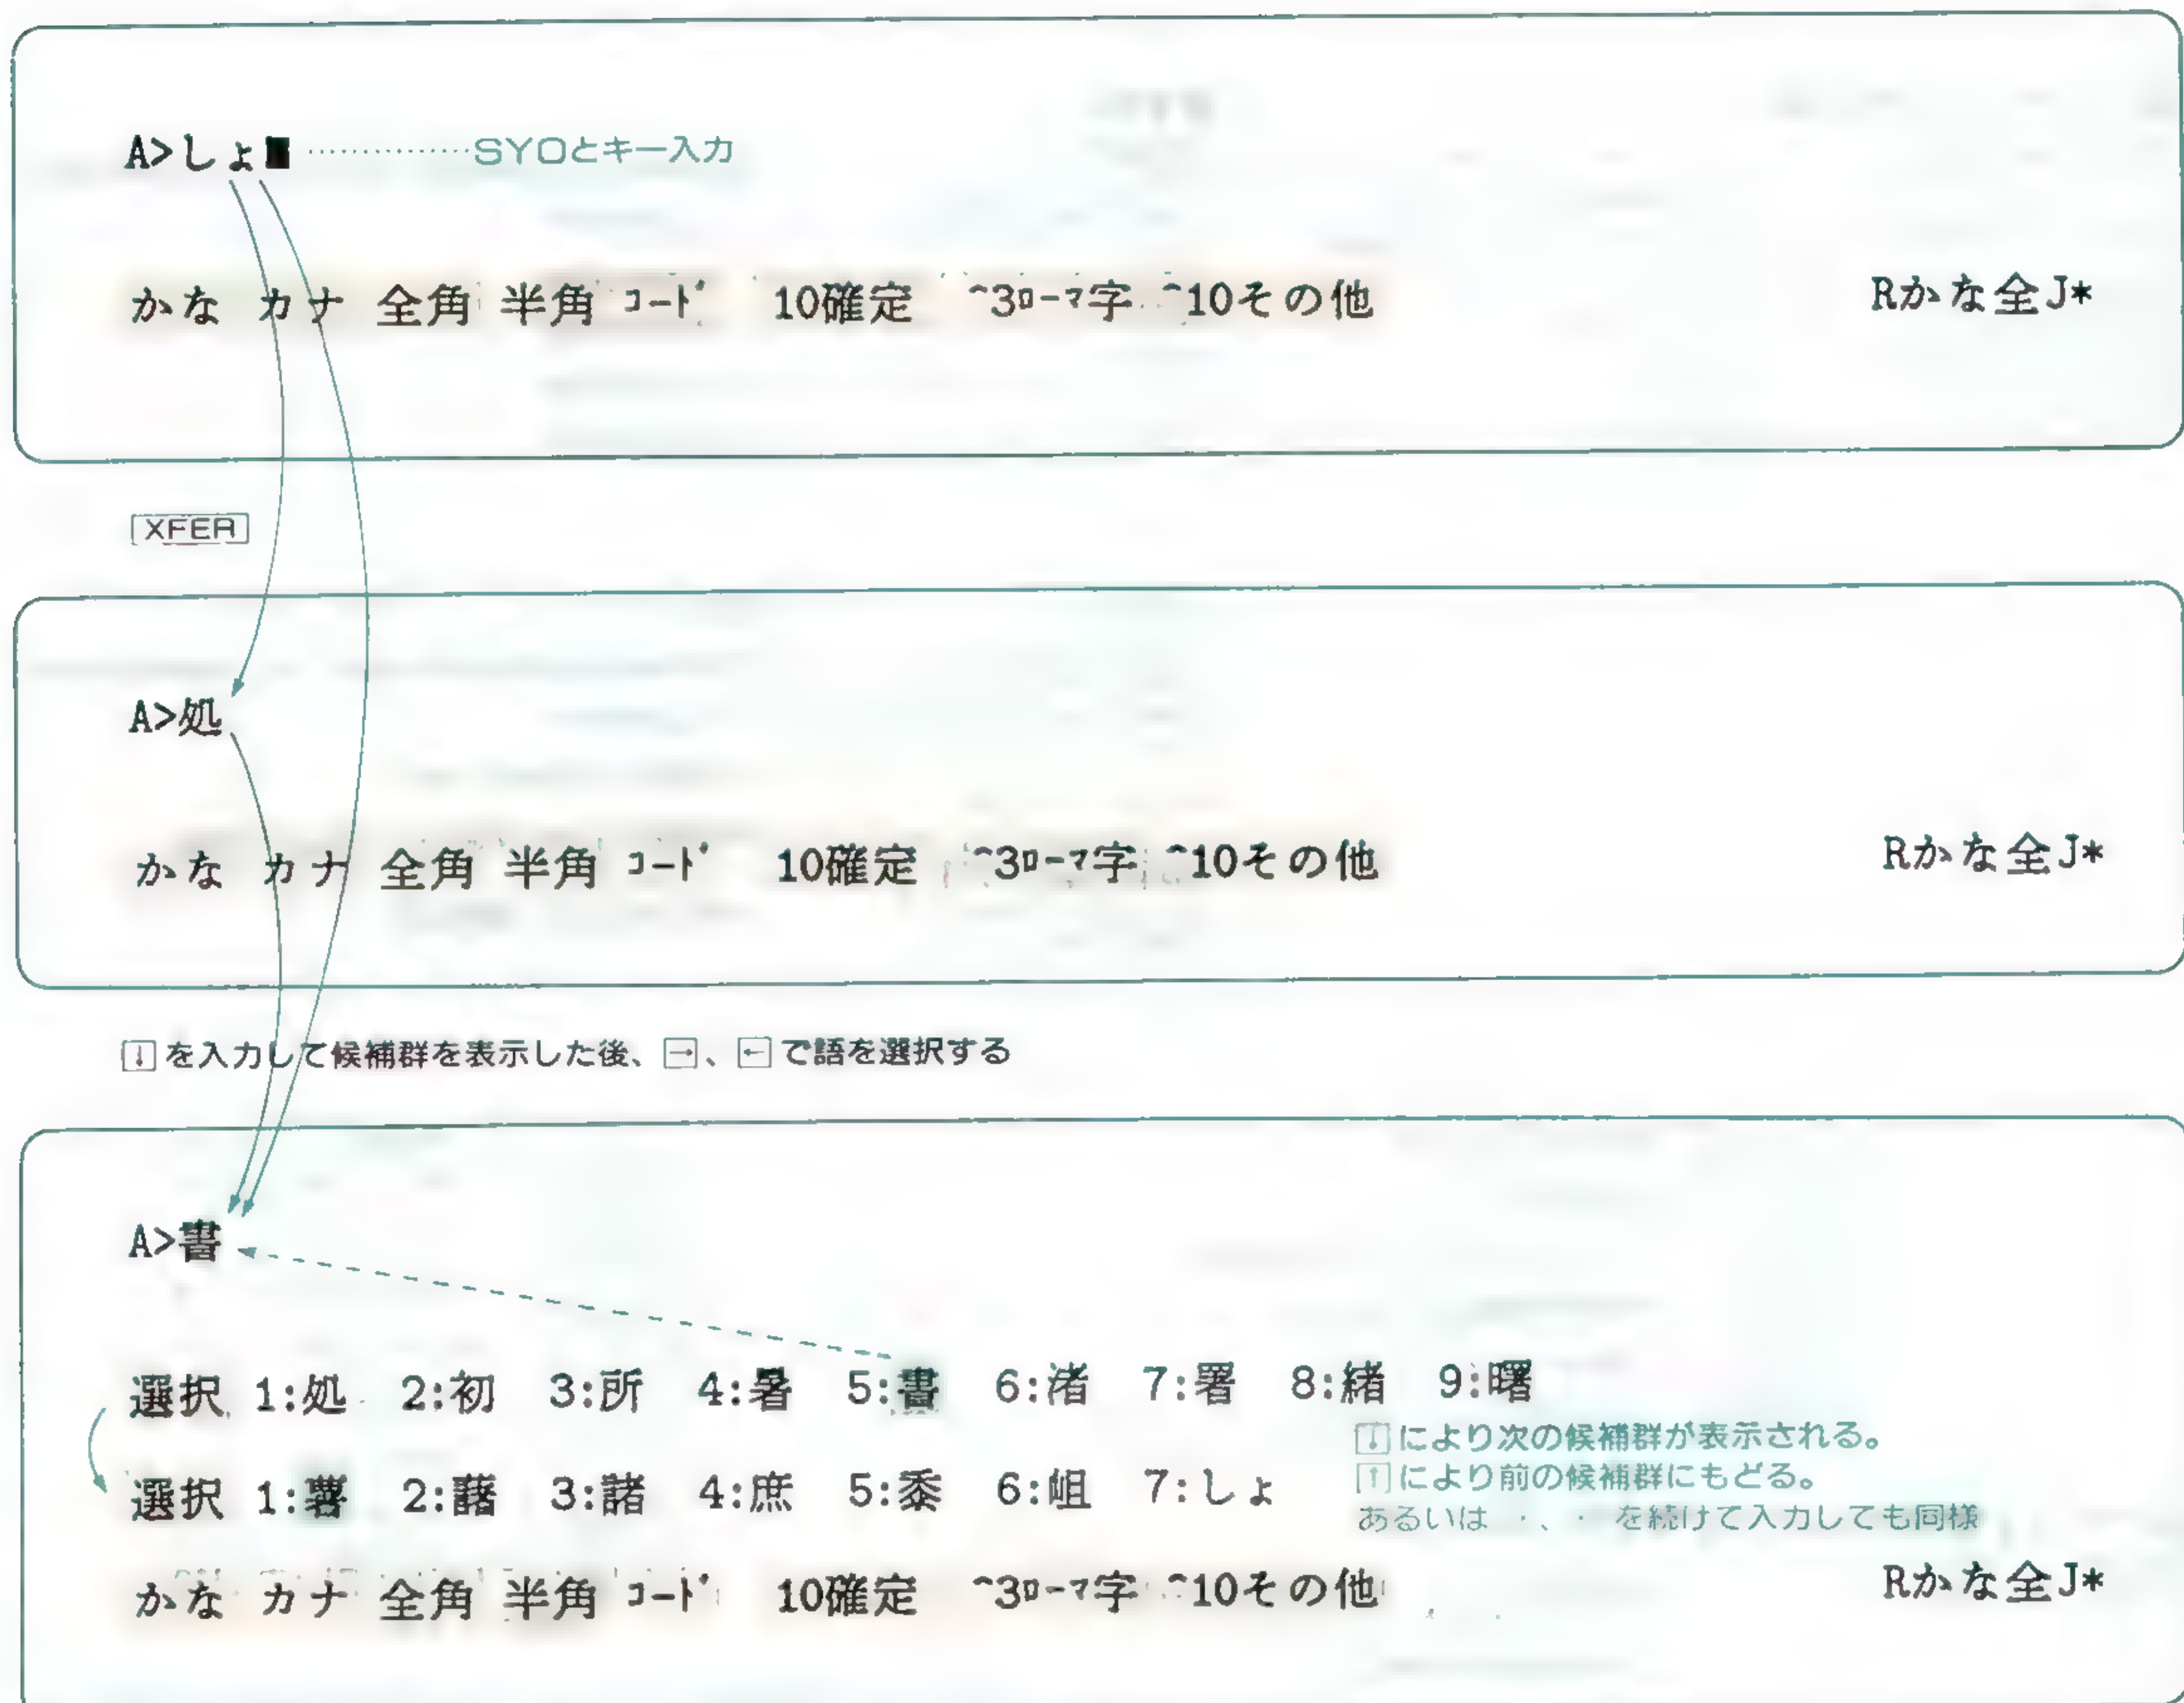 A>しょ■ …………SYOとキー入力
かな カナ 全角 半角 ｺｰﾄﾞ 10確定 ^3ﾛｰﾏ字 ^10その他 Rかな全J*
XFER
A>処
かな カナ 全角 半角 ｺｰﾄﾞ 10確定 ^3ﾛｰﾏ字 ^10その他 Rかな全J*
↓を入力して候補群を表示した後、→、←で語を選択する
A>書
選択 1:処 2:初 3:所 4:暑 5:書 6:渚 7:署 8:緒 9:曙
↓により次の候補群が表示される。
選択 1:薯 2:藷 3:諸 4:庶 5:黍 6:岨 7:しょ
↑により前の候補群にもどる。
あるいは 、 を続けて入力しても同様
かな カナ 全角 半角 ｺｰﾄﾞ 10確定 ^3ﾛｰﾏ字 ^10その他 Rかな全J*